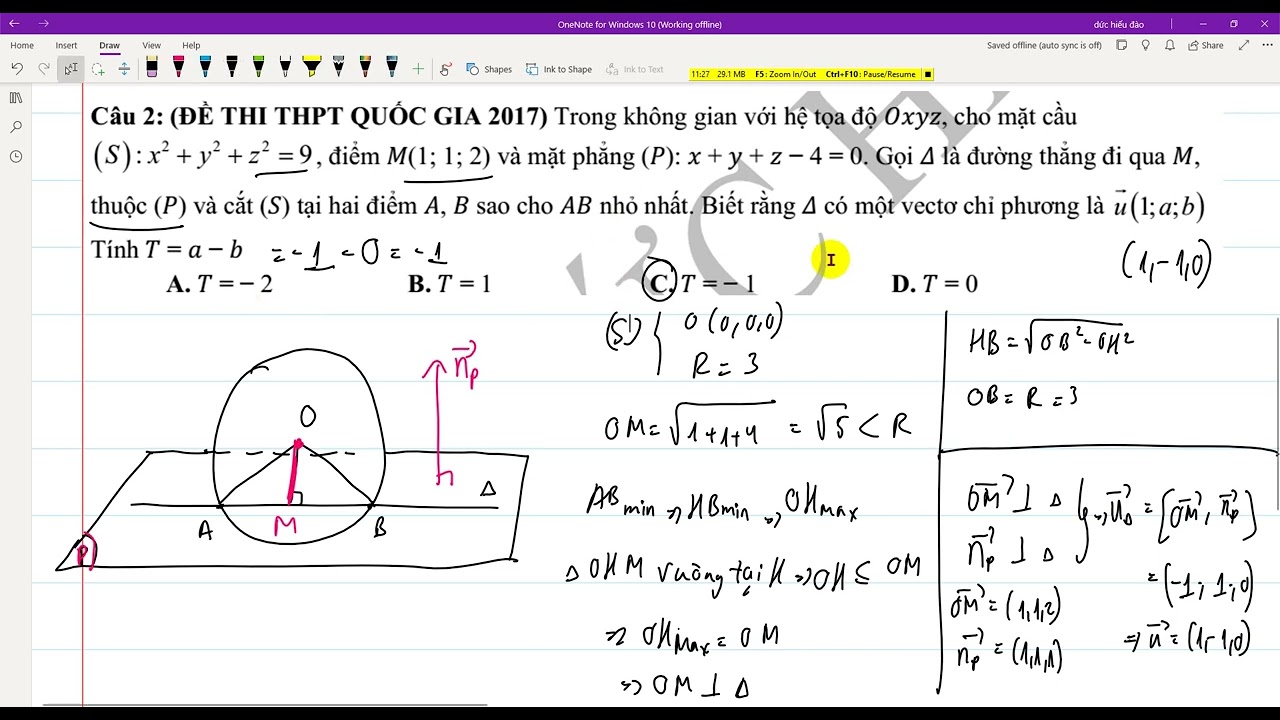 OneNote for Windows 10 (Working offline)
đức hiếu đào
Home Insert Draw View Help
Saved offline (auto sync is off)
Share
Shapes
Ink to Shape
Ink to Text
11:27 29.1 MB F5: Zoom In/Out Ctrl+F10: Pause/Resume
Câu 2: (ĐỀ THI THPT QUỐC GIA 2017) Trong không gian với hệ tọa độ Oxyz, cho mặt cầu
(S): x² + y² + z² = 9, điểm M(1; 1; 2) và mặt phẳng (P): x + y + z − 4 = 0. Gọi Δ là đường thẳng đi qua M,
thuộc (P) và cắt (S) tại hai điểm A, B sao cho AB nhỏ nhất. Biết rằng Δ có một vectơ chỉ phương là u⃗(1; a; b)
Tính T = a − b = -1 - 0 = -1
(1,-1,0)
A. T = − 2 B. T = 1 C. T = − 1 D. T = 0
(S) { O(0,0,0)
R = 3
OM = √1+1+4 = √5 < R
AB min => HB min => OH max
Δ OHM vuông tại H => OH ≤ OM
=> OH Max = OM
=> OM ⊥ Δ
HB = √OB² - OH²
OB = R = 3
OM⃗ ⊥ Δ
n⃗p ⊥ Δ
} => u⃗Δ = [OM⃗, n⃗p]
= (-1; 1; 0)
OM⃗ = (1,1,2)
n⃗p = (1,1,1)
=> u⃗ = (1,-1,0)
n⃗p
O
Δ
A M B
P